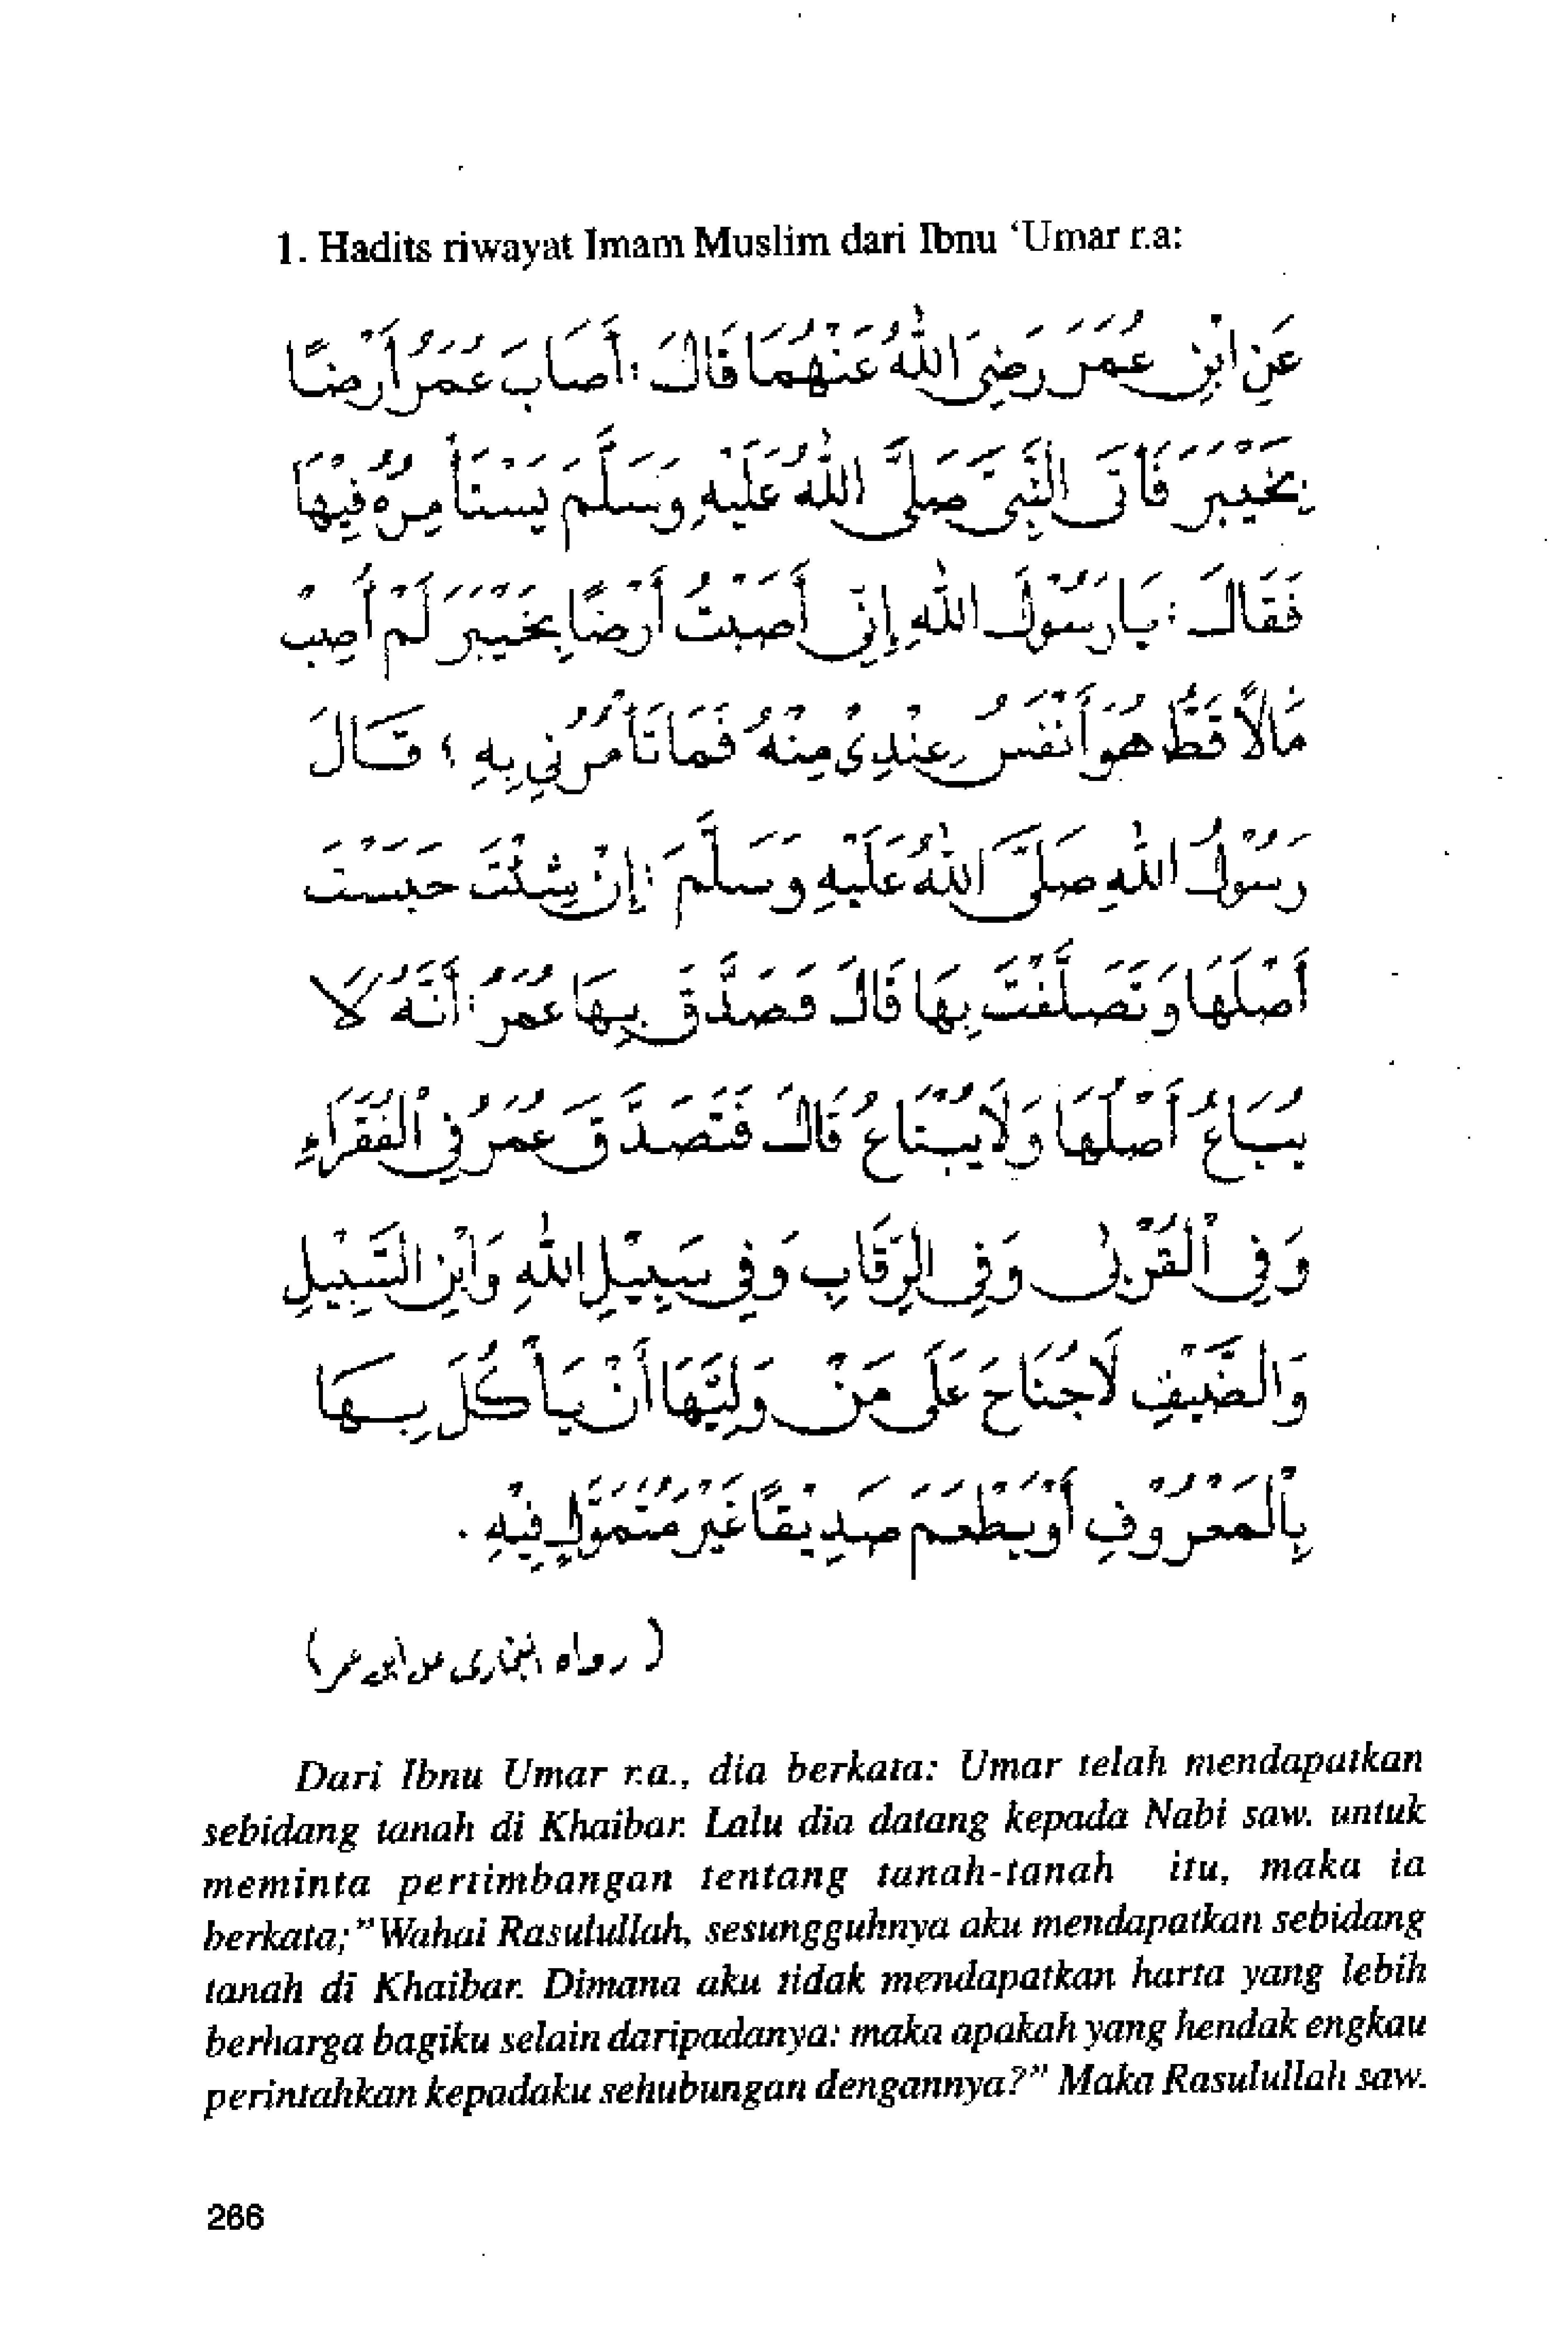 1. Hadits riwayat Imam Muslim dari Ibnu ‘Umar r.a:
عَنِ ابْنِ عُمَرَ رَضِيَ اللهُ عَنْهُمَا قَالَ: أَصَابَ عُمَرُ أَرْضًا
بِخَيْبَرَ فَأَتَى النَّبِيَّ صَلَّى اللهُ عَلَيْهِ وَسَلَّمَ يَسْتَأْمِرُهُ فِيْهَا
فَقَالَ: يَا رَسُوْلَ اللهِ إِنِّى أَصَبْتُ أَرْضًا بِخَيْبَرَ لَمْ أُصِبْ
مَالًا قَطُّ هُوَ أَنْفَسُ عِنْدِىْ مِنْهُ فَمَا تَأْمُرُنِي بِهِ ؛ قَالَ
رَسُوْلُ اللهِ صَلَّى اللهُ عَلَيْهِ وَسَلَّمَ: إِنْ شِئْتَ حَبَسْتَ
أَصْلَهَا وَتَصَلَّقْتَ بِهَا قَالَ فَصَدَّقَ بِهَا عُمَرُ: أَنَّهُ لَا
يُبَاعُ أَصْلُهَا وَلَا يُبْتَاعُ قَالَ فَتَصَدَّقَ عُمَرُ فِي الْفُقَرَاءِ
وَفِى الْقُرْبٰى وَفِى الرِّقَابِ وَفِى سَبِيْلِ اللهِ وَابْنِ السَّبِيْلِ
وَالضَّيْفِ لَا جُنَاحَ عَلَى مَنْ وَلِيَهَا أَنْ يَأْكُلَ بِهَا
بِالْمَعْرُوْفِ أَوْ يُطْعَمَ صَدِيْقًا غَيْرَ مُتَمَوِّلٍ فِيْهِ .
( رواه البخارى عن ابن عمر )
Dari Ibnu Umar r.a., dia berkata: Umar telah mendapatkan
sebidang tanah di Khaibar. Lalu dia datang kepada Nabi saw. untuk
meminta pertimbangan tentang tanah-tanah itu, maka ia
berkata;”Wahai Rasulullah, sesungguhnya aku mendapatkan sebidang
tanah di Khaibar. Dimana aku tidak mendapatkan harta yang lebih
berharga bagiku selain daripadanya: maka apakah yang hendak engkau
perintahkan kepadaku sehubungan dengannya?” Maka Rasulullah saw.
266